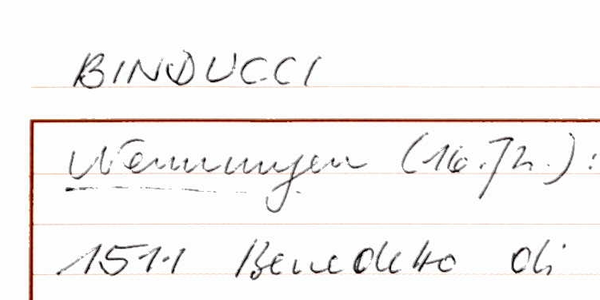 BINDUCCI
Nennungen (16. Jh.):
1511 Benedetto di